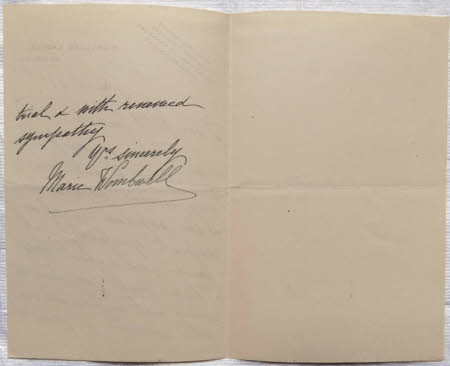 trial & with renewed
sympathy
Yrs. sincerely
Marie Wombwell